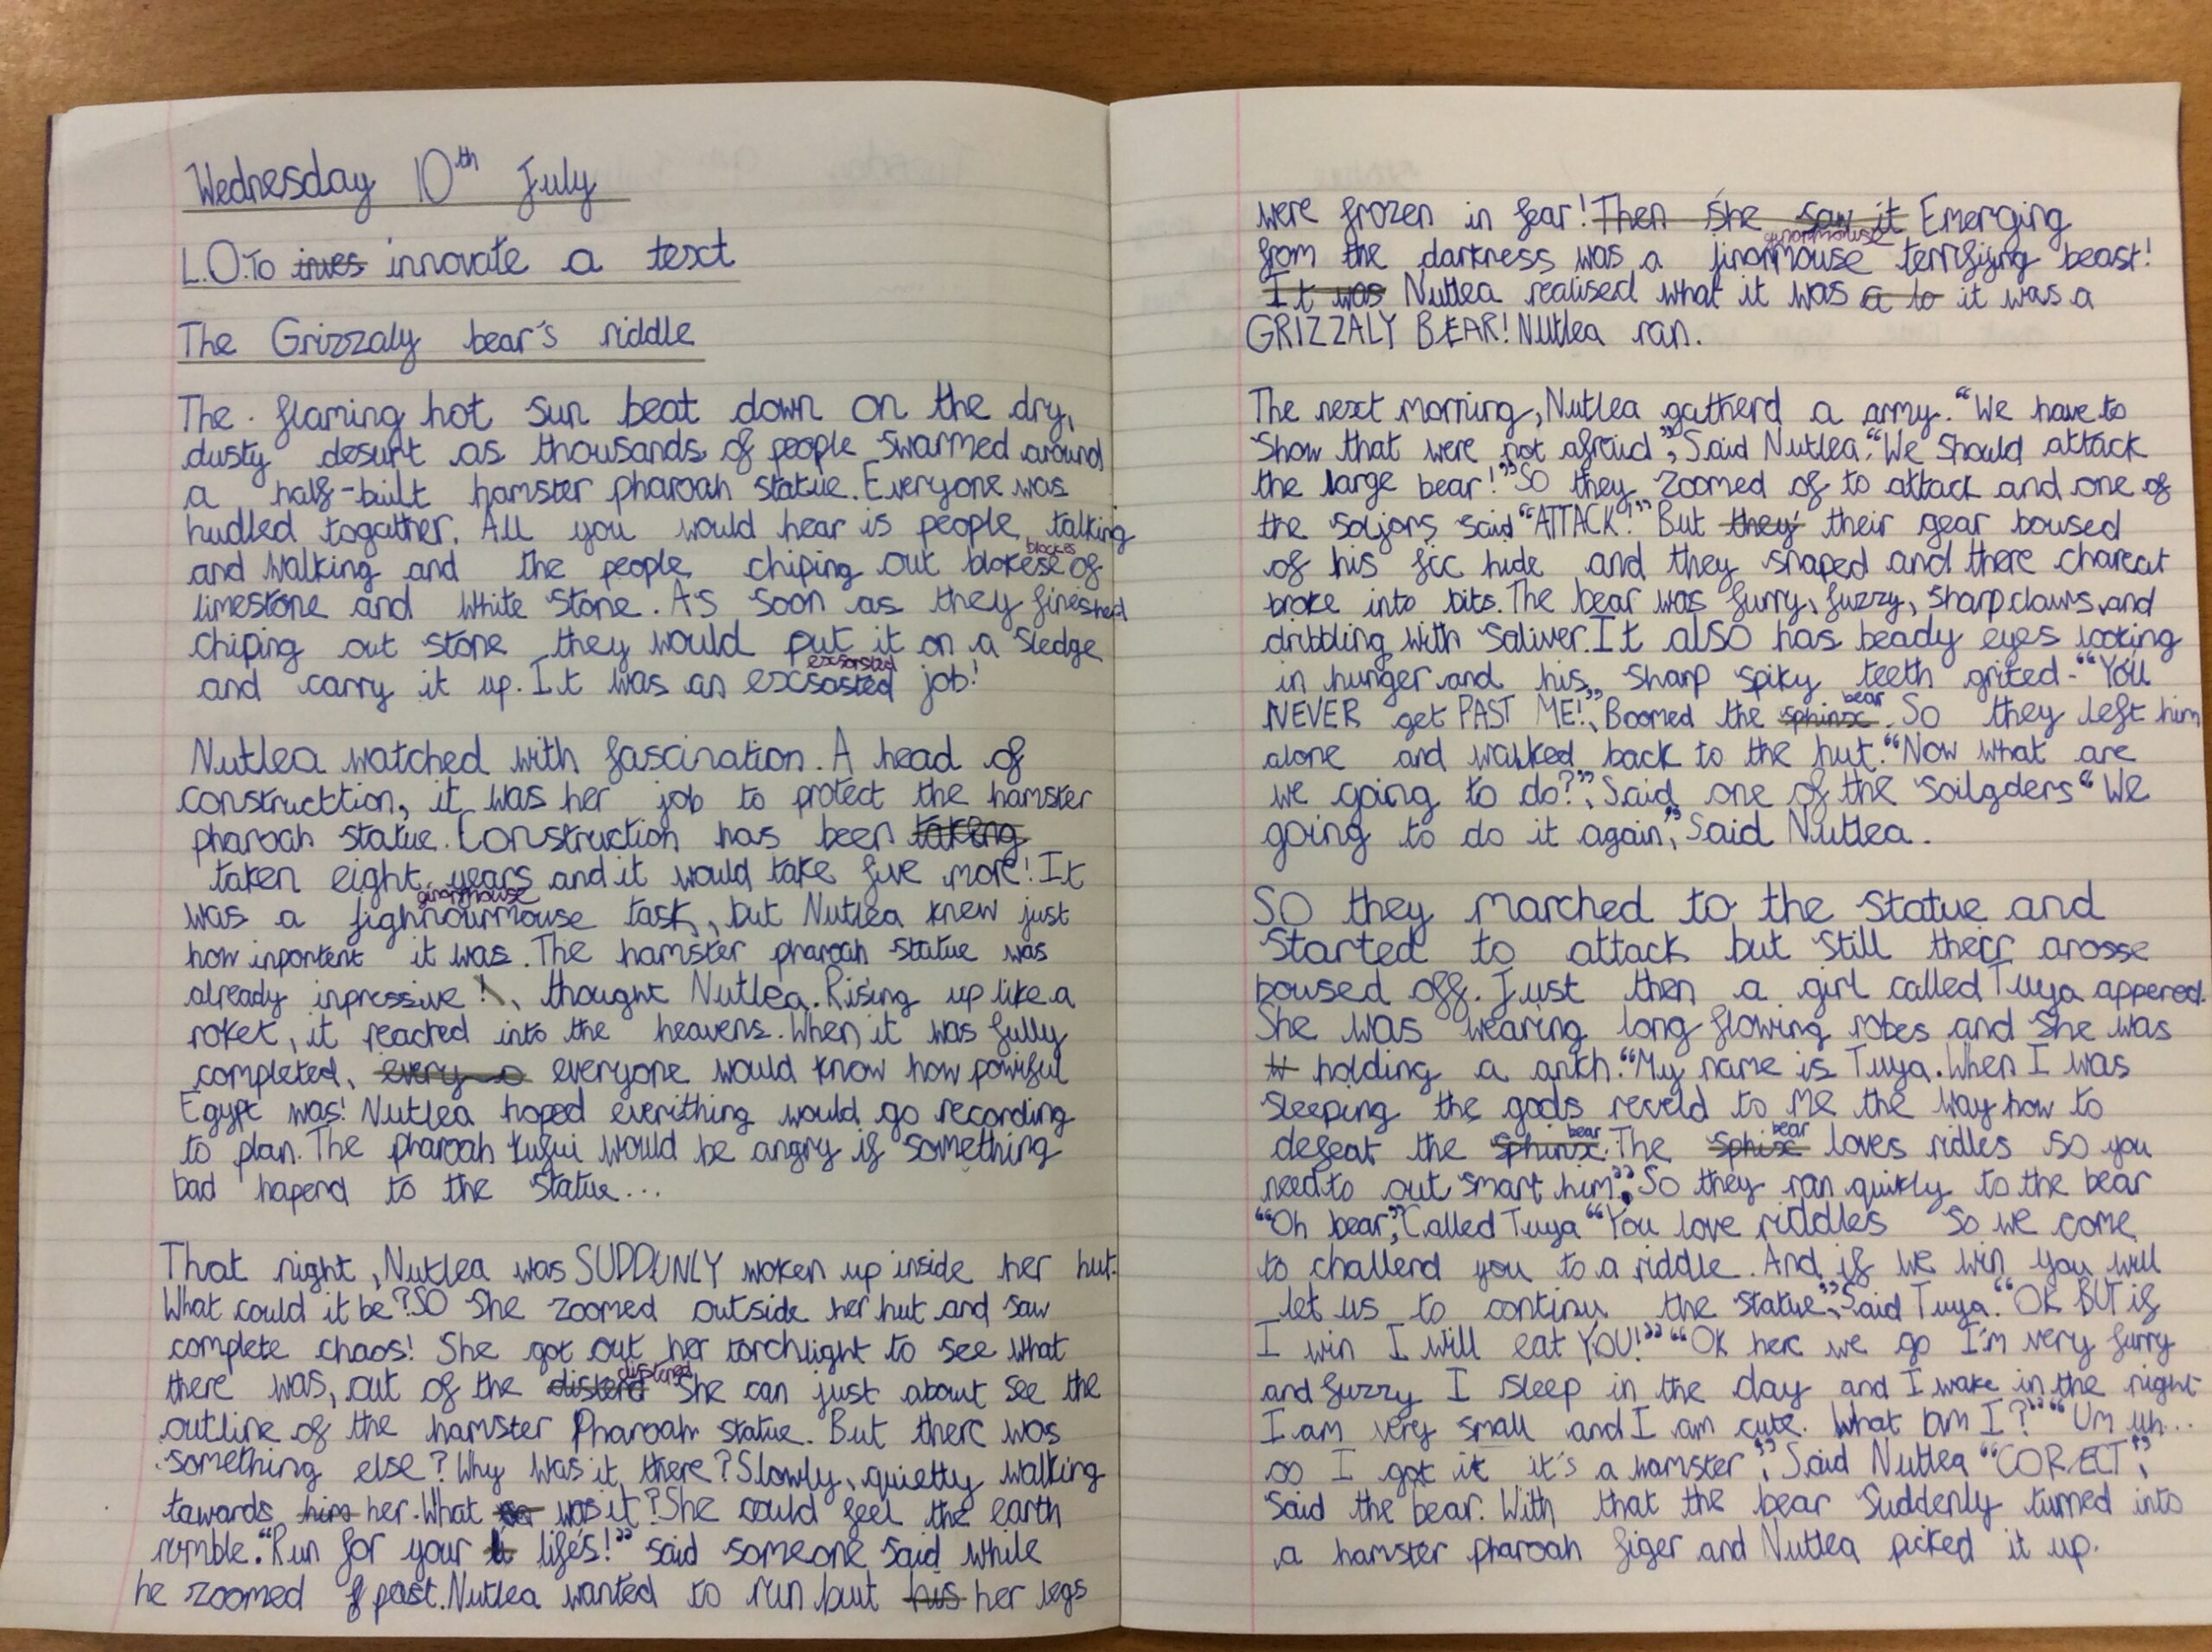 Wednesday 10th July
L.O.To innovate a text
The Grizzaly bear's riddle
The flaming hot sun beat down on the dry,
dusty desurt as thousands of people swarmed around
a half-built hamster pharoah statue. Everyone was
hudled togather. All you would hear is people talking
blockes
and walking and the people chiping out blokese of
limestone and white stone. As soon as they fineshed
chiping out stone they would put it on a sledge
excsorsted
and carry it up. It was an excsosted job!
Nutlea watched with fascination. A head of
constructtion, it was her job to protect the hamster
pharoah statue. Construction has been taking
taken eight years and it would take five more! It
ginormouse
was a fighnourmouse task, but Nutlea knew just
how inportent it was. The hamster pharoah statue was
already inpressive!, thought Nutlea. Rising up like a
roket, it reached into the heavens. When it was fully
completed, every o everyone would know how powiful
Egypt was! Nutlea hoped everithing would go recording
to plan. The pharoah tufui would be angry if something
bad hapend to the statue...
That night, Nutlea was SUDDUNLY woken up inside her hut.
What could it be? SO she zoomed outside her hut and saw
complete chaos! She got out her torchlight to see what
there was, out of the disterd She can just about see the
outline of the hamster Pharoah statue. But there was
something else? Why was it there? Slowly, quietty walking
tawards him her. What was it? She could feel the earth
rumble. "Run for your life's!" said someone said while
he zoomed past. Nutlea wanted to run but his her legs
were frozen in fear! Then she saw it Emerging
ginormouse
from the darkness was a jinormouse terrifying beast!
It was Nutlea realised what it was a to it was a
GRIZZALY BEAR! Nutlea ran.
The next morning, Nutlea gatherd a army. "We have to
show that were not afraid", Said Nutlea. "We should attack
the large bear!" So they zoomed of to attack and one of
the soljors said "ATTACK!" But they their gear boused
of his hide and they snaped and there chareat
broke into bits. The bear was furry, fuzzy, sharp claws and
dribbling with saliver. It also has beady eyes looking
in hunger and his sharp spiky teeth grited - "You
NEVER get PAST ME!", Boomed the sphinx bear. So they left him
alone and walked back to the hut. "Now what are
we going to do?", Said one of the soilgders "We
going to do it again", Said Nutlea.
SO they marched to the statue and
started to attack but still their arosse
boused off. Just then a girl called Tuya appered.
She was wearing long flowing robes and she was
holding a ankh. "My name is Tuya. When I was
sleeping the gods reveld to me the way how to
defeat the sphinx bear. The sphix bear loves ridles so you
need to out smart him". So they ran quikly to the bear
"Oh bear", Called Tuya "You love riddles so we come
to challend you to a riddle. And if we win you will
let us to continu the statue", Said Tuya. "OK BUT if
I win I will eat YOU!" "Ok here we go I'm very furry
and fuzzy I sleep in the day and I wake in the night
I am very small and I am cute. What am I?" "Um uh...
oo I got it it's a hamster", Said Nutlea "CORECT",
said the bear. With that the bear suddenly turned into
a hamster pharoah figer and Nutlea picked it up.